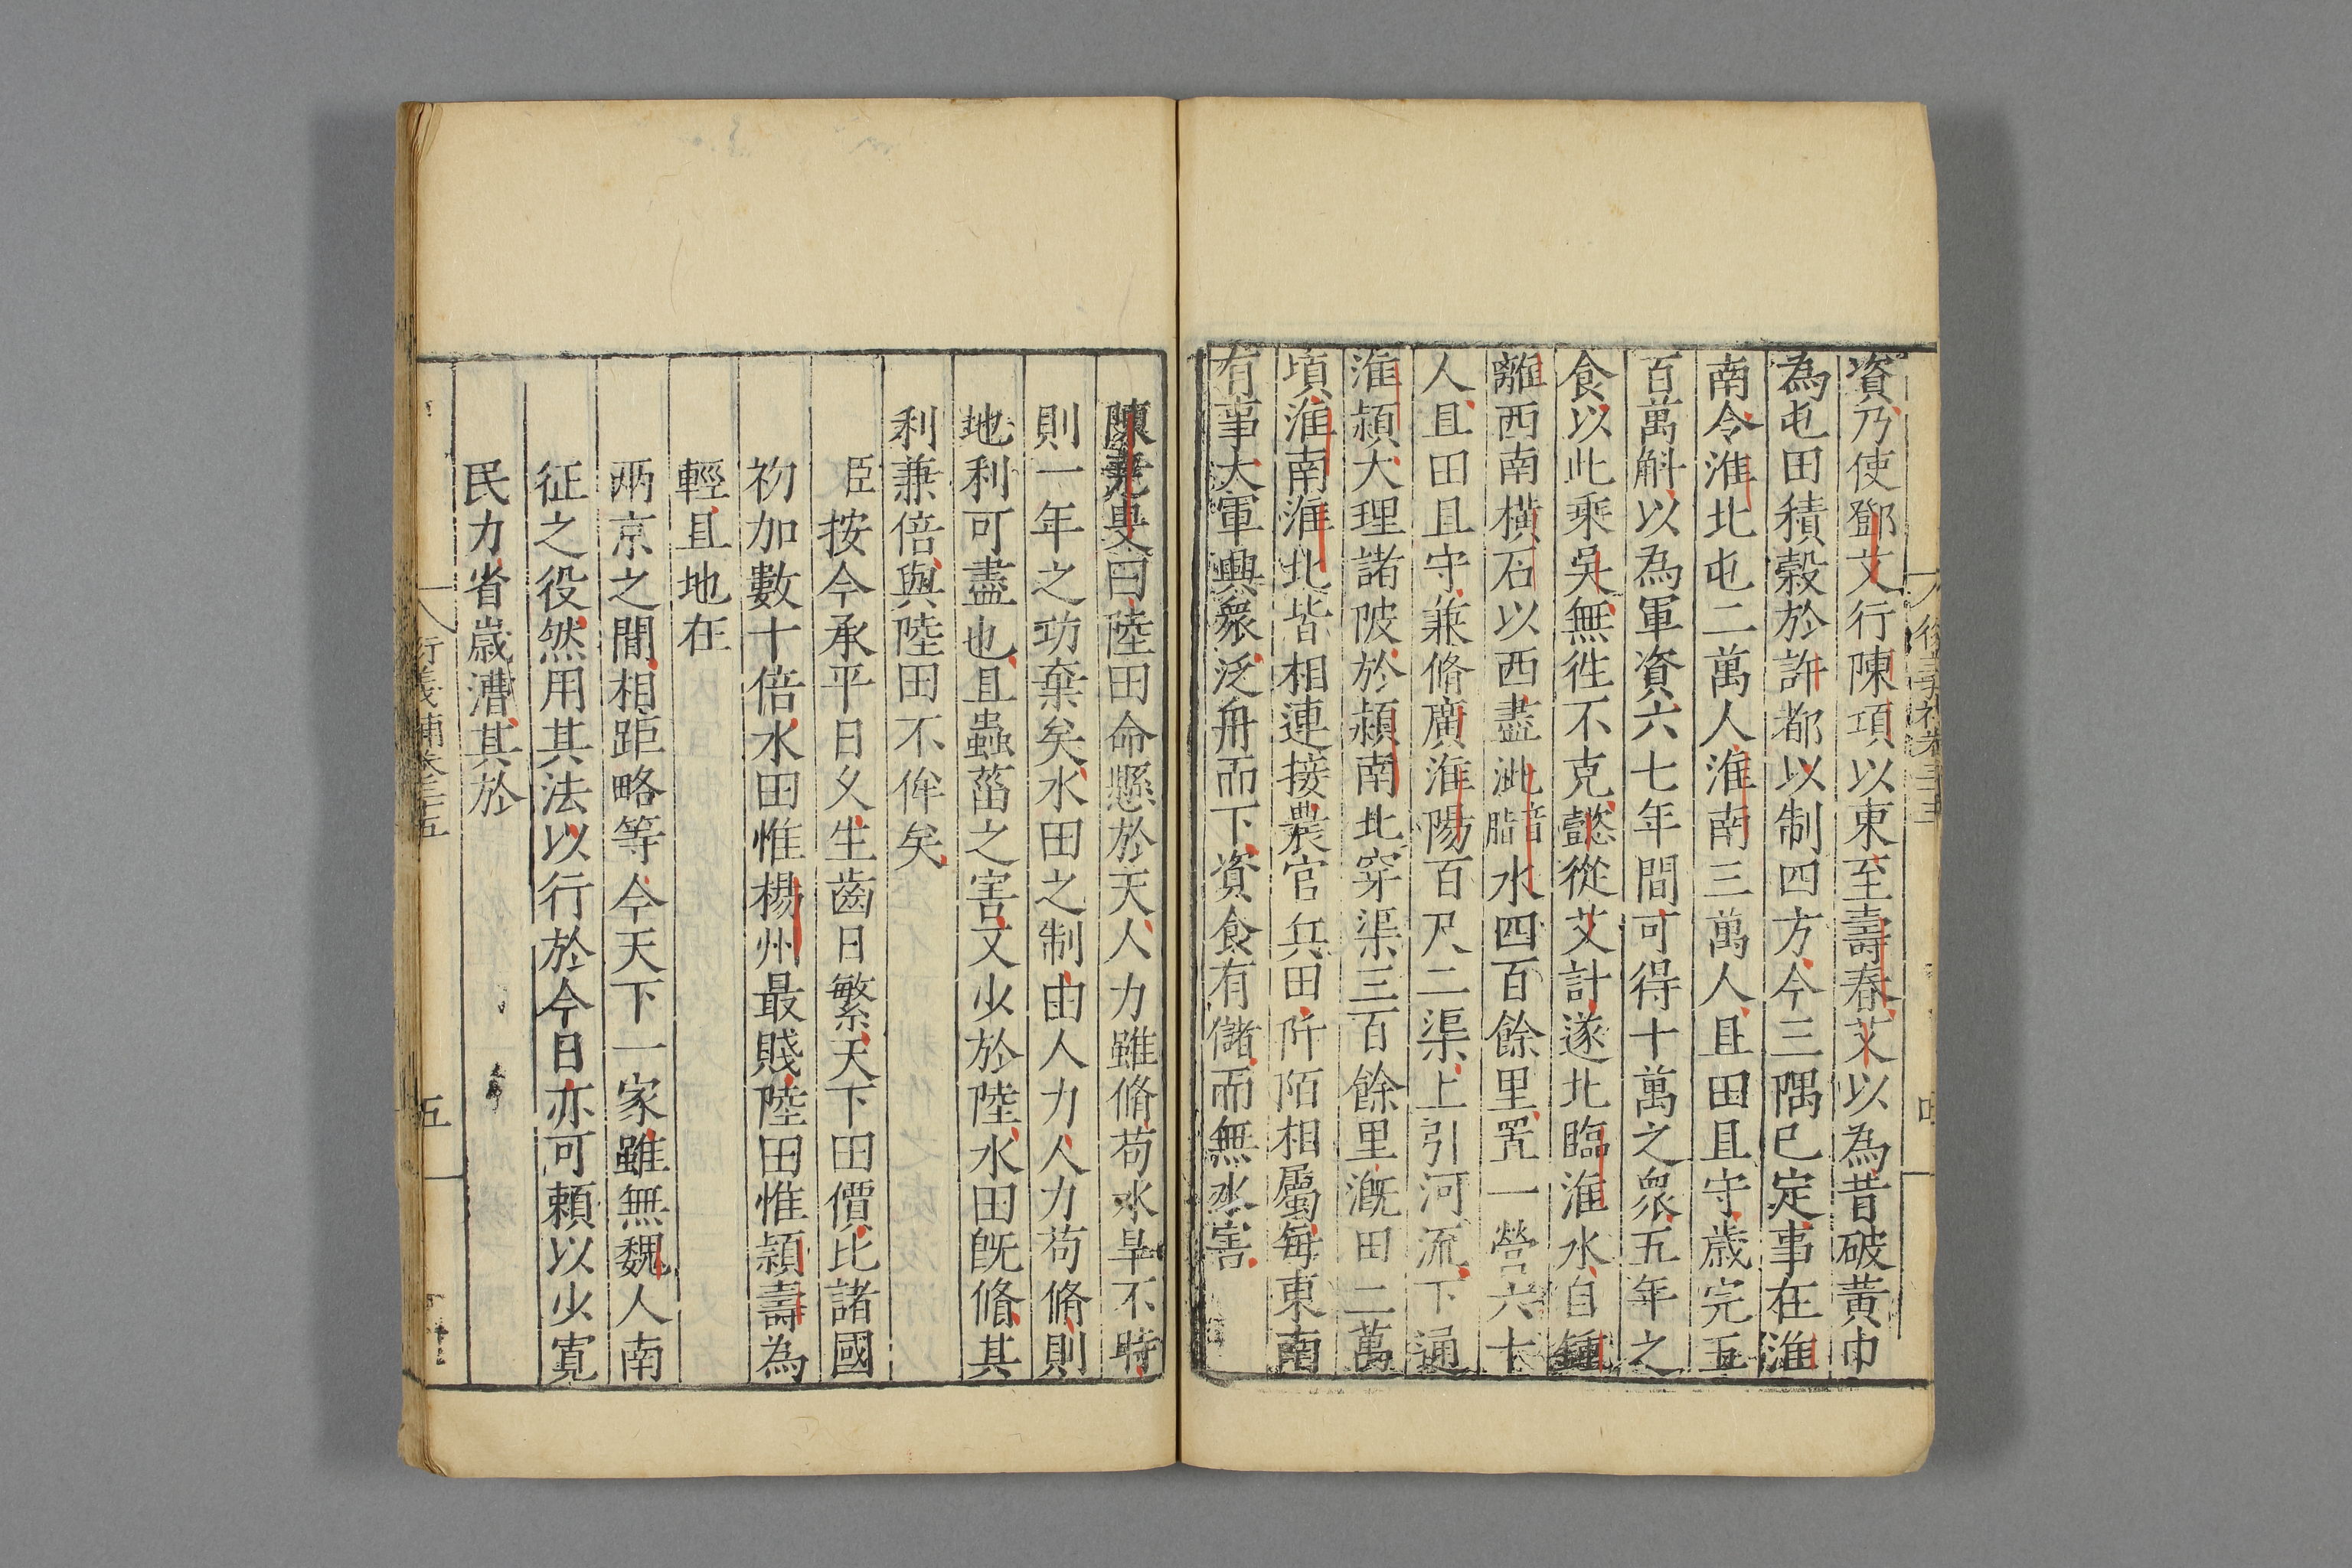 資乃使鄧艾行陳項以東至壽春艾以為昔破黃巾
為屯田積穀於許都以制四方今三隅已定事在淮
南令淮北屯二萬人淮南三萬人且田且守歲完五
百萬斛以為軍資六七年間可得十萬之衆五年之
食以此乘吳無徃不克懿從艾計遂北臨淮水自鍾
離西南橫石以西盡沘音脂水四百餘里置一營六十
人且田且守兼脩廣淮陽百尺二渠上引河流下通
淮潁大理諸陂於潁南北穿渠三百餘里溉田二萬
頃淮南淮北皆相連接農官兵田阡陌相屬每東南
有事大軍興衆泛舟而下資食有儲而無水害
陳堯叟曰陸田命懸於天人力雖脩苟水旱不時
則一年之功棄矣水田之制由人力人力苟脩則
地利可盡也且蟲菑之害又少於陸水田旣脩其
利兼倍與陸田不侔矣
臣按今承平日乆生齒日繁天下田價比諸國
初加數十倍水田惟楊州最賤陸田惟潁壽為
輕且地在
兩京之間相距略等今天下一家雖無魏人南
征之役然用其法以行於今日亦可頼以少寬
民力省歲漕其於
行義補卷三五
五